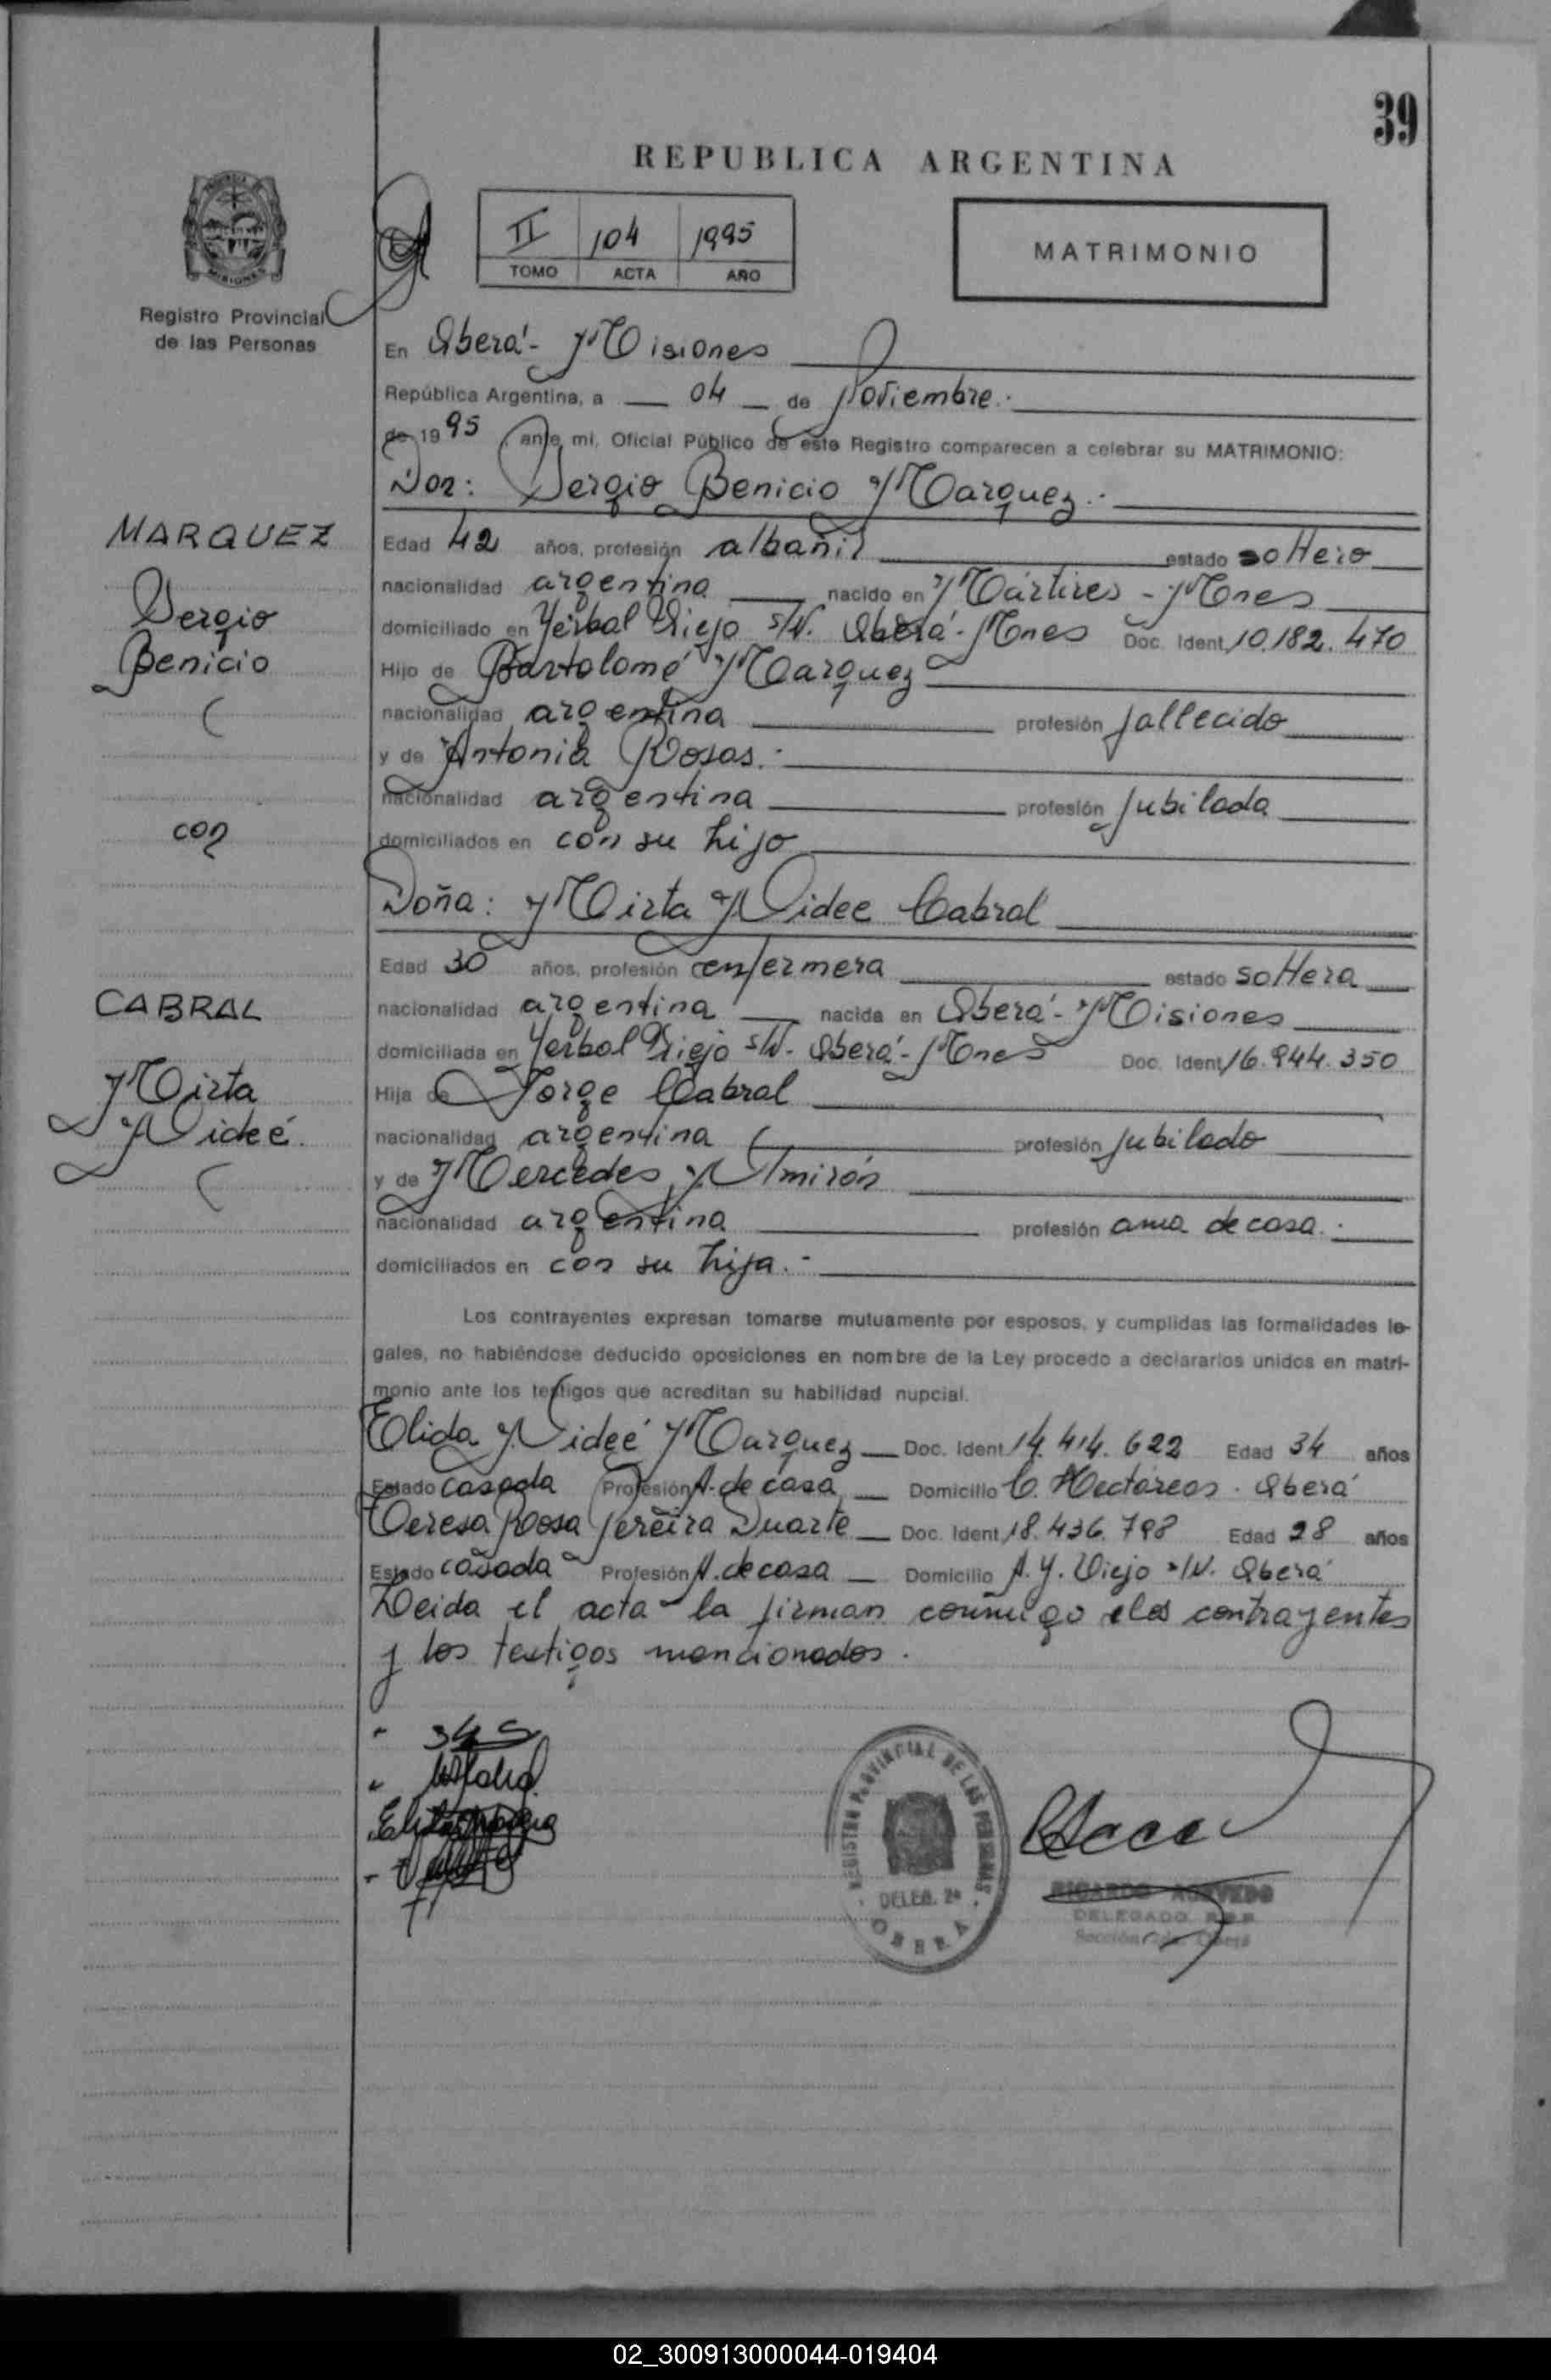 39
REPUBLICA ARGENTINA
II 104 1995
TOMO ACTA AÑO
MATRIMONIO
MISIONES
Registro Provincial
de las Personas
En Oberá - Misiones
República Argentina, a 04 de Noviembre.-
de 1995, ante mi, Oficial Público de este Registro comparecen a celebrar su MATRIMONIO:
Don: Sergio Benicio Marquez.-
MARQUEZ
Sergio
Benicio
con
CABRAL
Mirta
Aideé.
Edad 42 años, profesión albañil estado soltero
nacionalidad argentina nacido en Mártires - Mnes
domiciliado en Yerbal Viejo s/N. Oberá - Mnes Doc. Ident. 10.182.470
Hijo de Bartolomé Marquez
nacionalidad argentina profesión fallecido
y de Antonia Rosas.-
nacionalidad argentina profesión jubilada
domiciliados en con su hijo
Doña: Mirta Aidee Cabral
Edad 30 años, profesión enfermera estado soltera
nacionalidad argentina nacida en Oberá - Misiones
domiciliada en Yerbal Viejo s/N - Oberá - Mnes Doc. Ident. 16.944.350
Hija de Jorge Cabral
nacionalidad argentina profesión jubilado
y de Mercedes Almirón
nacionalidad argentina profesión ama de casa.-
domiciliados en con su hija.-
Los contrayentes expresan tomarse mutuamente por esposos, y cumplidas las formalidades le-
gales, no habiéndose deducido oposiciones en nombre de la Ley procedo a declararlos unidos en matri-
monio ante los testigos que acreditan su habilidad nupcial.
Elida Aideé Marquez Doc. Ident. 14.414.622 Edad 34 años
Estado casada Profesión A. de casa Domicilio C. Hectáreas - Oberá
Teresa Rosa Pereira Duarte Doc. Ident. 18.436.798 Edad 28 años
Estado casada Profesión A. de casa Domicilio A. Y. Viejo s/N. Oberá
Leida el acta la firman conmigo los contrayentes
y los testigos mencionados.
REGISTRO PROVINCIAL DE LAS PERSONAS
DELEG. 2ª
OBERA
RICARDO ACEVEDO
DELEGADO R.P.P.
02_300913000044-019404